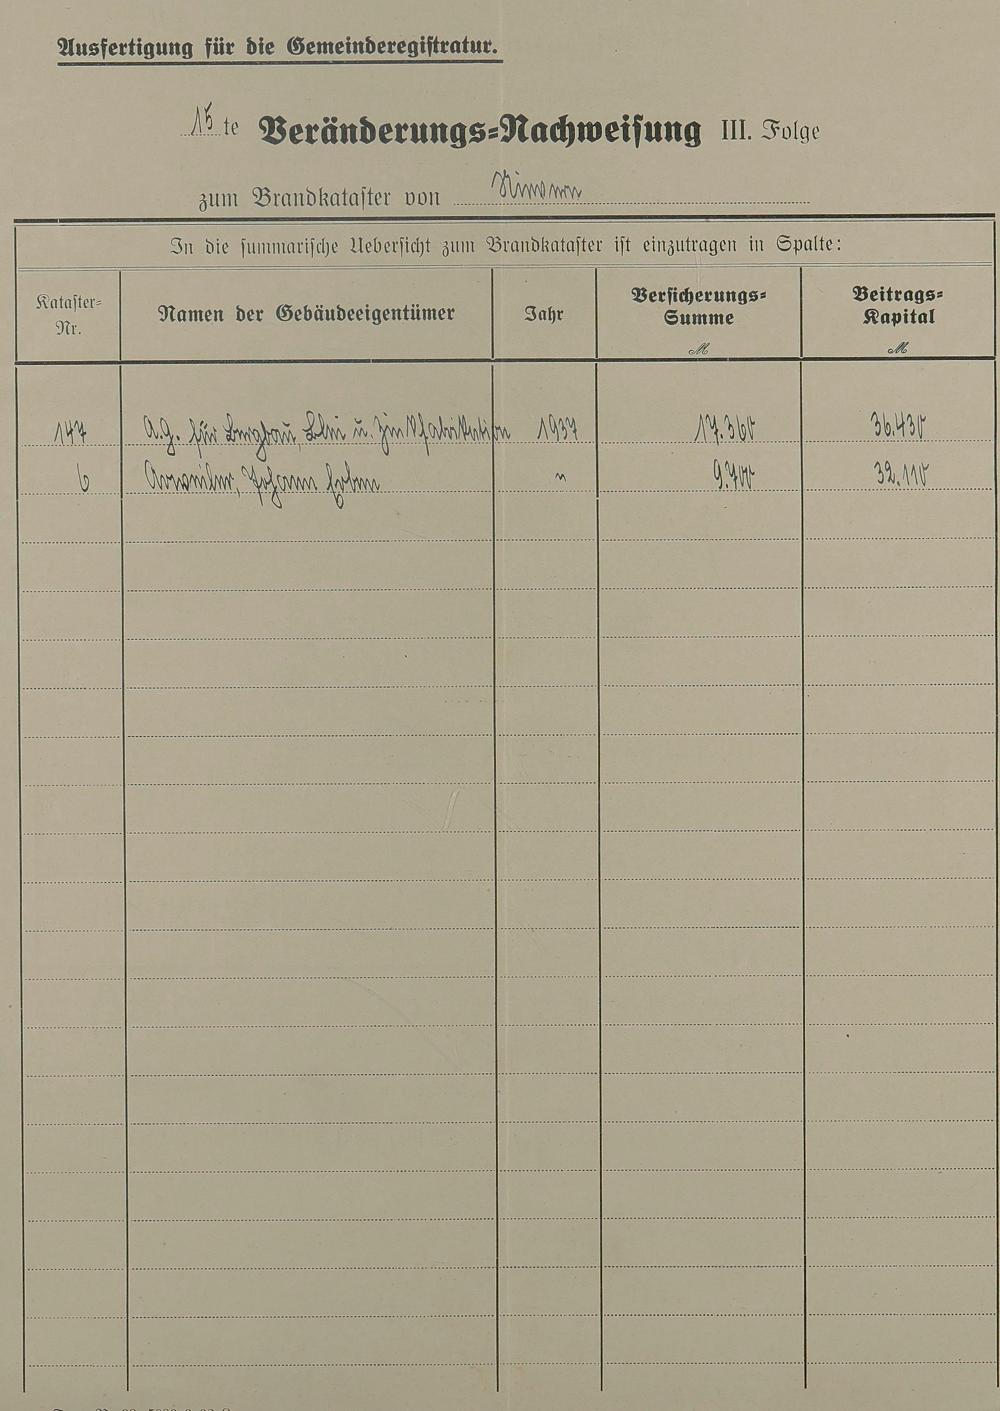 Ausfertigung für die Gemeinderegistratur.
15te Veränderungs=Nachweisung III. Folge
zum Brandkataster von
In die summarische Uebersicht zum Brandkataster ist einzutragen in Spalte:
Kataster=Nr. Namen der Gebäudeeigentümer Jahr Versicherungs=Summe M Beitrags=Kapital M
147 A.G. für Bergbau, Blei u. Zinkfabrikation 1937 17.360 36.430
6 Johann Erben " 9.700 32.110